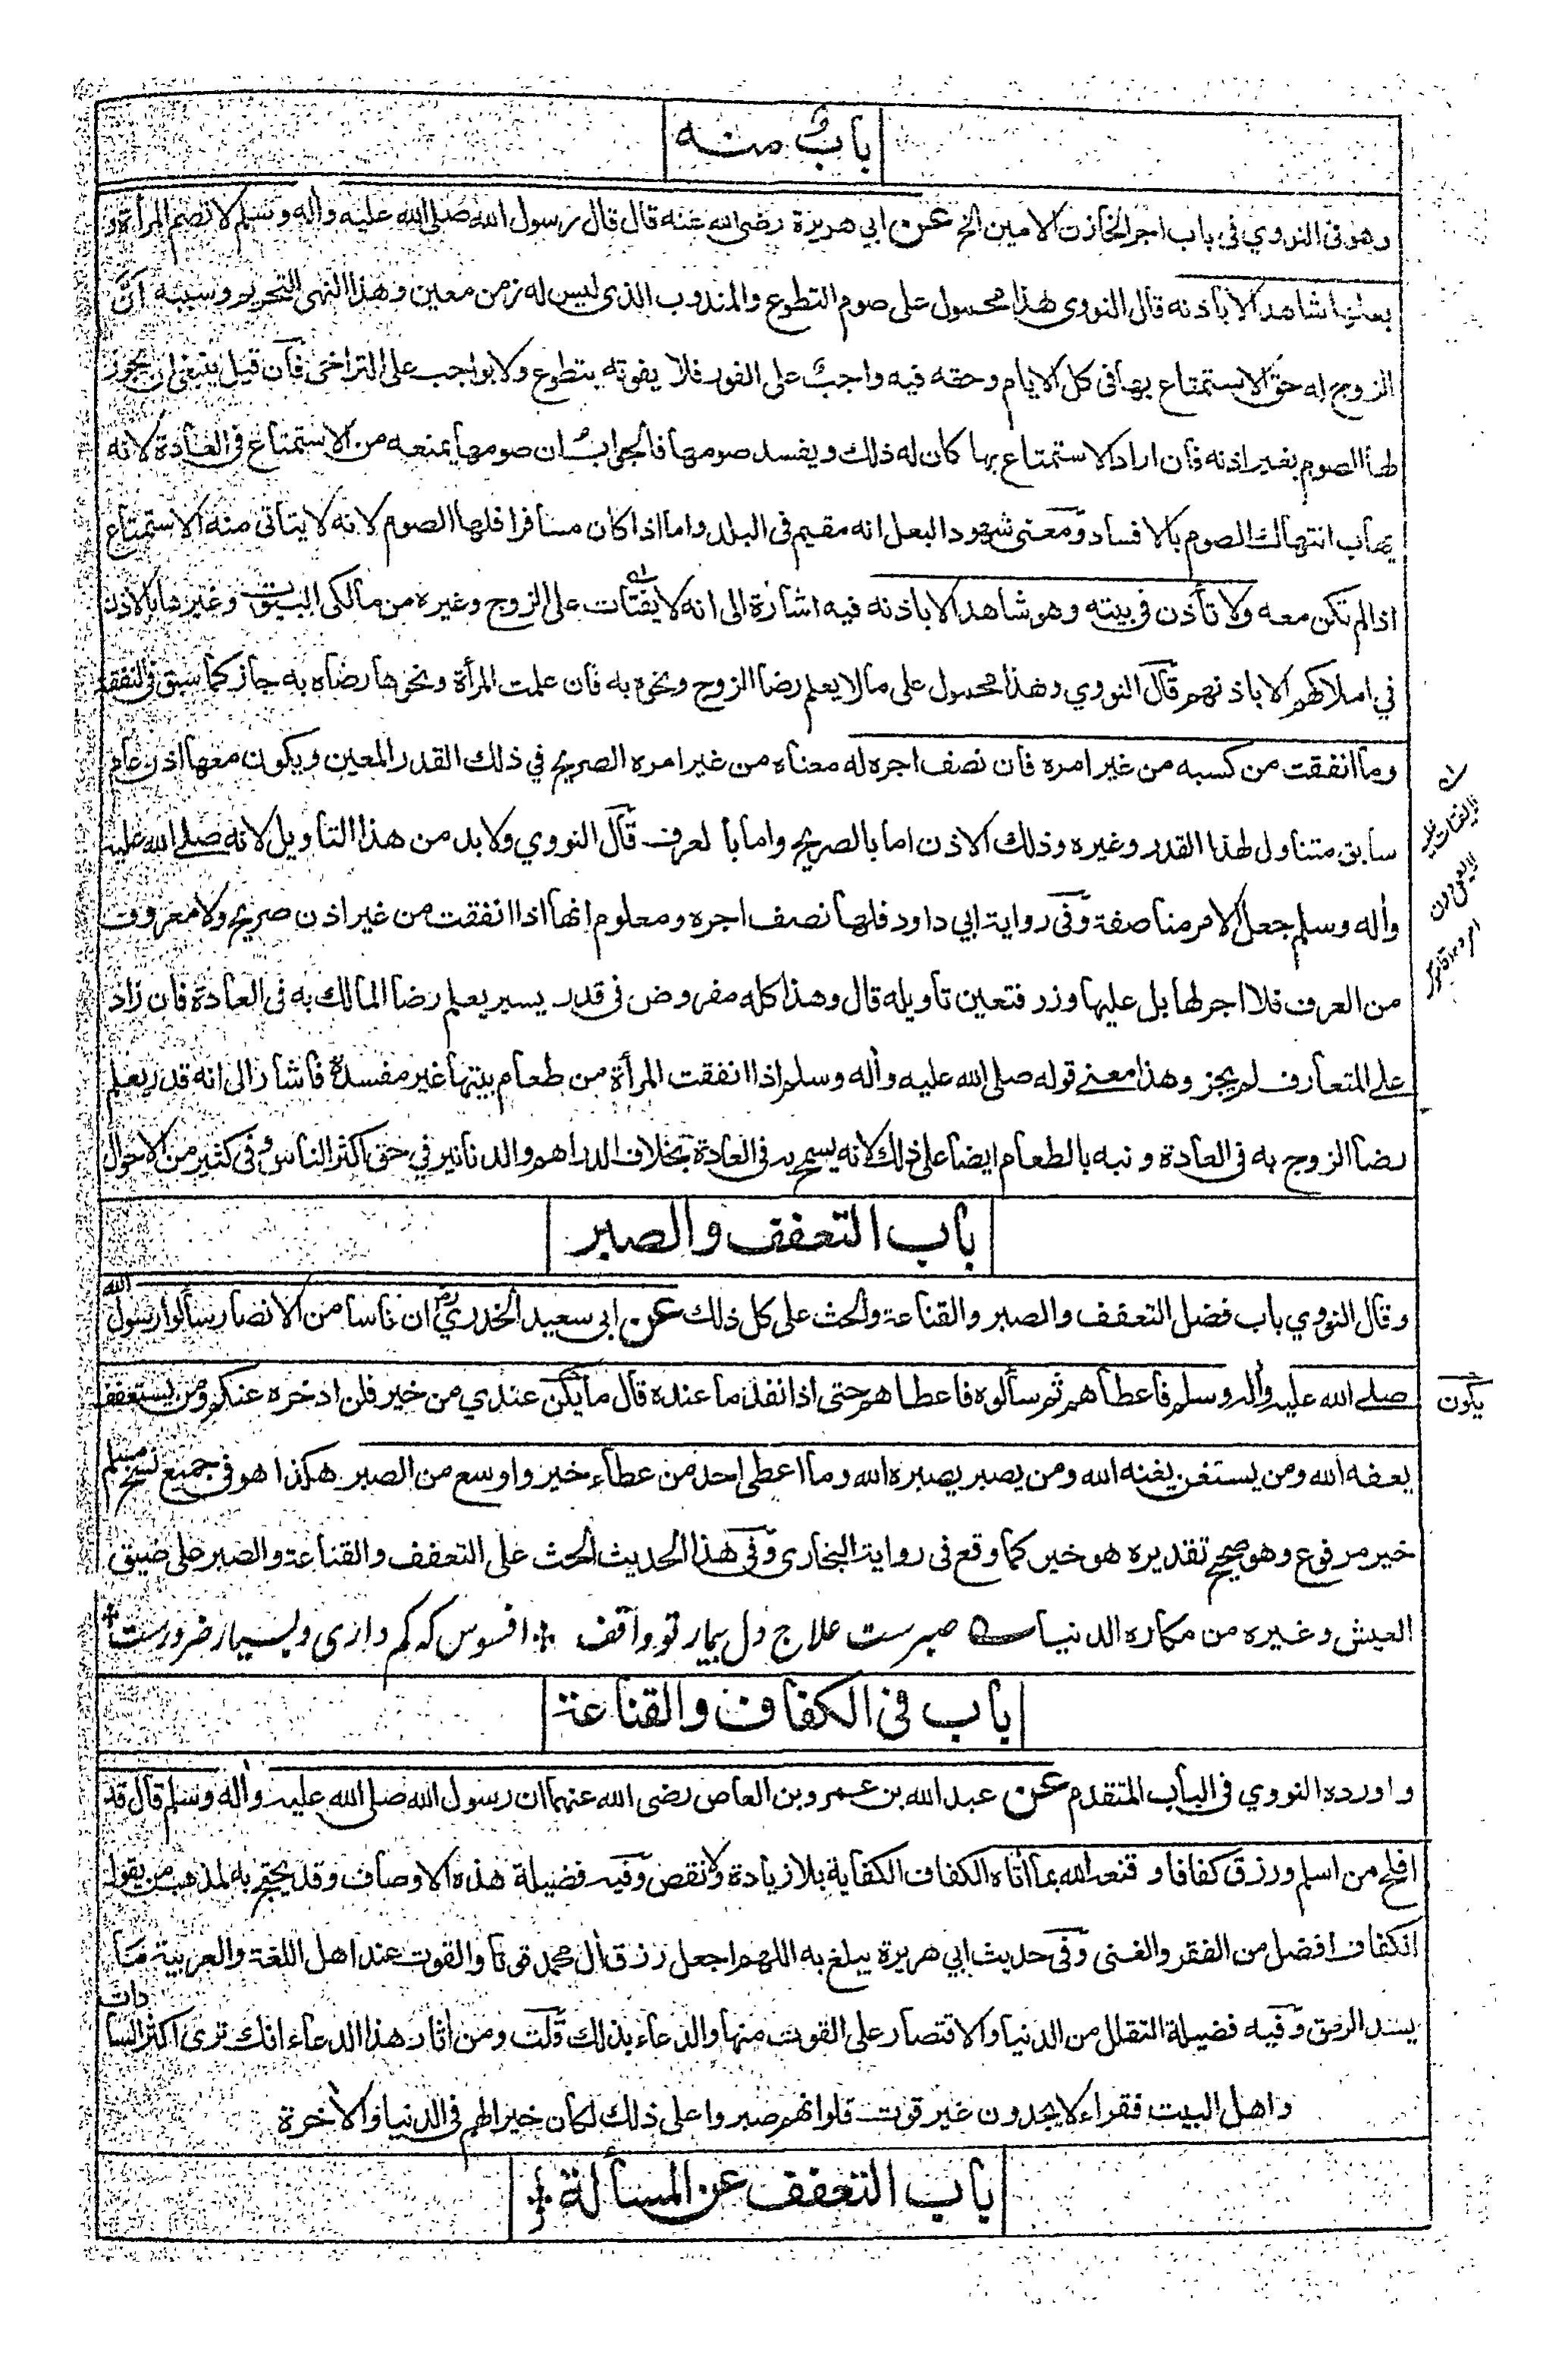 باب منه
وهو في النووي في باب اجر الخازن الامين الخ عن ابي هريرة رضى الله عنه قال قال رسول الله صلى الله عليه واٰله وسلم لا تصم المرأة و
بعلها شاهد الا باذنه قال النووى هذا محمول على صوم التطوع والمندوب الذى ليس له زمن معين وهذا النهى للتحريم وسببه انَّ
الزوج له حق الاستمتاع بها فى كل الايام وحقه فيه واجب على الفور فلا يفوته بتطوع ولا بواجب على التراخى فان قيل ينبغى ان يجوز
لها الصوم بغير اذنه فان اراد الاستمتاع بها كان له ذلك ويفسد صومها فالجواب ان صومها يمنعه من الاستمتاع فى العادة لانه
يهاب انتهاك الصوم بالافساد ومعنى شهود البعل انه مقيم فى البلد واما اذا كان مسافرا فلها الصوم لانه لا يتاتى منه الاستمتاع
اذا لم تكن معه ولا تأذن فى بيته وهو شاهد الا باذنه فيه اشارة الى انه لا يفتات على الزوج وغيره من مالكى البيوت وغيرها بالاذن
في املاكهم الا باذنهم قال النووي وهذا محمول على ما لا يعلم رضا الزوج ونحوه به فان علمت المرأة ونحوها رضاه به جاز كما سبق فى النفقة
وما انفقت من كسبه من غير امره فان نصف اجره له معناه من غير امره الصريح في ذلك القدر المعين ويكون معها اذن عام
سابق متناول لهذا القدر وغيره وذلك الاذن اما بالصريح واما بالعرف قال النووي ولا بد من هذا التاويل لانه صلى الله عليه
واٰله وسلم جعل الامر مناصفة وفى رواية ابي داود فلها نصف اجره ومعلوم انها اذا انفقت من غير اذن صريح ولا معروف
من العرف فلا اجر لها بل عليها وزر فتعين تاويله قال وهذا كله مفروض فى قدر يسير يعلم رضا المالك به فى العادة فان زاد
على المتعارف لم يجز وهذا معنى قوله صلى الله عليه واٰله وسلم اذا انفقت المرأة من طعام بيتها غير مفسدة فاشار الى انه قدر يعلم
رضا الزوج به فى العادة ونبه بالطعام ايضا على ذلك لانه يسمح به فى العادة بخلاف الدراهم والدنانير في حق اكثر الناس وفى كثير من الاحوال
باب التعفف والصبر
وقال النووي باب فضل التعفف والصبر والقناعة والحث على كل ذلك عن ابى سعيد الخدري ان ناسا من الانصار سألوا رسول الله
صلى الله عليه واٰله وسلم فاعطاهم ثم سألوه فاعطاهم حتى اذا نفد ما عنده قال ما يكن عندي من خير فلن ادخره عنكم ومن يستعفف
يكون
يعفه الله ومن يستغن يغنه الله ومن يصبر يصبره الله وما اعطى احد من عطاء خير واوسع من الصبر هكذا هو فى جميع نسخ مسلم
خير مرفوع وهو صحيح تقديره هو خير كما وقع فى رواية البخارى وفى هذا الحديث الحث على التعفف والقناعة والصبر على ضيق
العيش وغيره من مكاره الدنيا صبرست علاج دل بيمار تو واقف افسوس كه كم دارى وبسيار ضرورست
باب فى الكفاف والقناعة
واورده النووي فى الباب المتقدم عن عبد الله بن عمرو بن العاص رضى الله عنهما ان رسول الله صلى الله عليه واٰله وسلم قال قد
افلح من اسلم ورزق كفافا وقنعه الله بما اٰتاه الكفاف الكفاية بلا زيادة ولا نقص وفيه فضيلة هذه الاوصاف وقد يحتج به لمذهب من يقول
الكفاف افضل من الفقر والغنى وفى حديث ابي هريرة يبلغ به اللهم اجعل رزق اٰل محمد قوتا والقوت عند اهل اللغة والعربية ما
يسد الرمق وفيه فضيلة التقلل من الدنيا والاقتصار على القوت منها والدعاء بذلك قلت ومن اٰثار هذا الدعاء انك ترى اكثر السادات
واهل البيت فقراء لا يجدون غير قوت فلو انهم صبروا على ذلك لكان خيرا لهم فى الدنيا والاٰخرة
باب التعفف عن المسألة